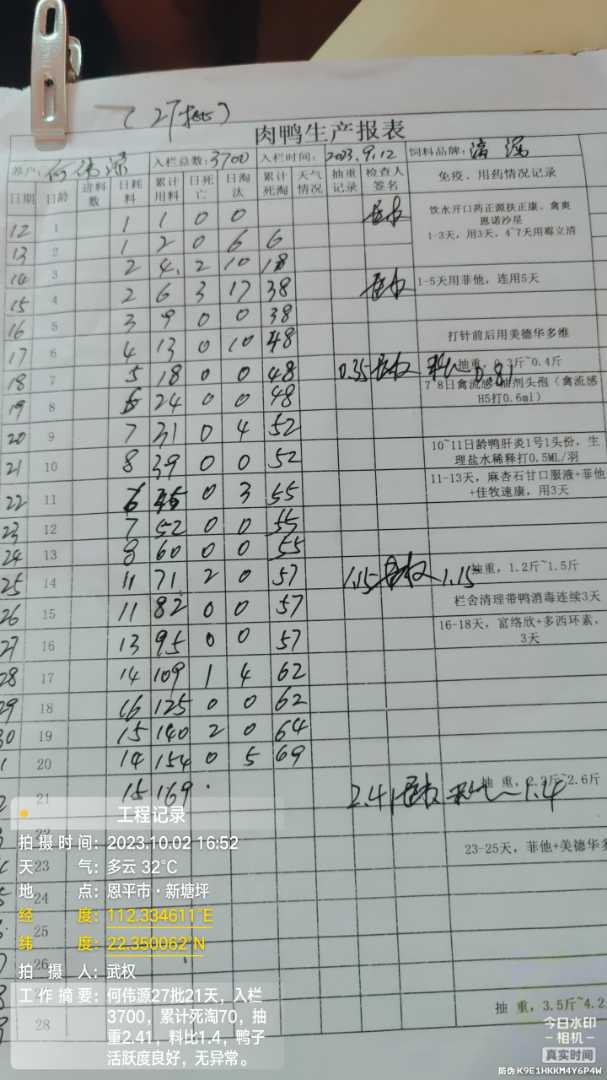 (27批)
肉鸭生产报表
养户: 何伟源 入栏总数:3700 入栏时间: 2023.9.12 饲料品牌:
日期 日龄 进料数 日耗料 累计用料 日死亡 日淘汰 累计死淘 天气情况 抽重记录 检查人签名 免疫、用药情况记录
12 1 1 1 0 0 饮水开口两正源扶正康、禽爽
恩诺沙星
1-3天,用3天,4~7天用霉立清
13 2 1 2 0 6 6
14 3 2 4 2 10 18
15 4 2 6 3 17 38 1-5天用菲他,连用5天
16 5 3 9 0 0 38
17 6 4 13 0 10 48 打针前后用美德华多维
18 7 5 18 0 0 48 0.35 抽重,0.3斤~0.4斤 0.81
19 8 6 24 0 0 48 7~8日禽流感 剂头孢(禽流感
H5打0.6ml)
20 9 7 31 0 4 52
21 10 8 39 0 0 52 10~11日龄鸭肝炎1号1头份,生
理盐水稀释打0.5ML/羽
22 11 6 45 0 3 55 11-13天,麻杏石甘口服液+菲他
+佳牧速康,用3天
23 12 7 52 0 0 55
24 13 8 60 0 0 55
25 14 11 71 2 0 57 1.15 抽重,1.2斤~1.5斤 1.15
26 15 11 82 0 0 57 栏舍清理带鸭消毒连续3天
27 16 13 95 0 0 57 16-18天,富络欣+多西环素,
3天
28 17 14 109 1 4 62
29 18 16 125 0 0 62
30 19 15 140 2 0 64
1 20 14 154 0 5 69
2 21 15 169 2.41 抽重, 2.6斤 1.4
23 23-25天,菲他+美德华多
24
25
26
28 抽重,3.5斤~4.2
工程记录
拍摄时间: 2023.10.02 16:52
天气: 多云 32℃
地点: 恩平市·新塘坪
经度: 112.334611°E
纬度: 22.350062°N
拍摄人: 武权
工作摘要: 何伟源27批21天,入栏
3700,累计死淘70,抽
重2.41,料比1.4,鸭子
活跃度良好,无异常。
今日水印
-相机-
真实时间
防伪 K9E1HKKM4Y6P4W